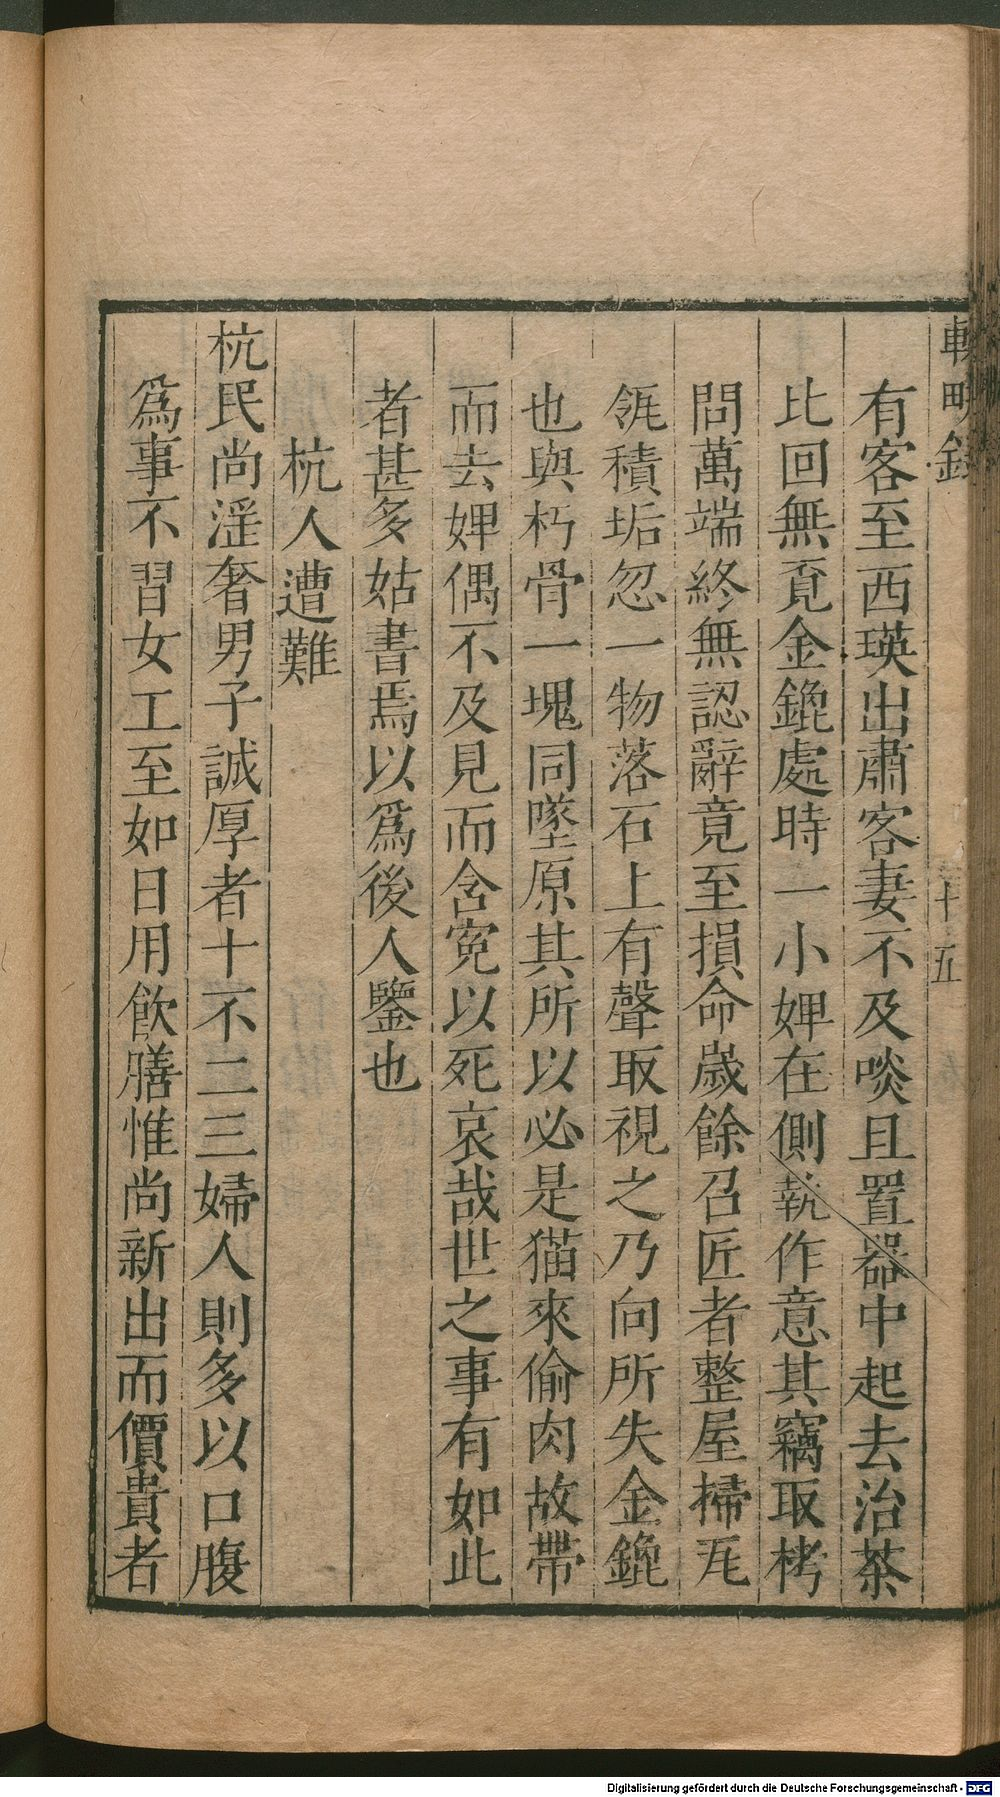 輟畊錄
十五
有客至西瑛出肅客妻不及啖且置器中起去治茶
比回無覔金鎞處時一小婢在側執作意其竊取栲
問萬端終無認辭竟至損命歲餘召匠者整屋掃瓦
瓴積垢忽一物落石上有聲取視之乃向所失金鎞
也與朽骨一塊同墜原其所以必是猫來偷肉故帶
而去婢偶不及見而含寃以死哀哉世之事有如此
者甚多姑書焉以爲後人鑒也
杭人遭難
杭民尚淫奢男子誠厚者十不二三婦人則多以口腹
爲事不習女工至如日用飲膳惟尚新出而價貴者
Digitalisierung gefördert durch die Deutsche Forschungsgemeinschaft - DFG